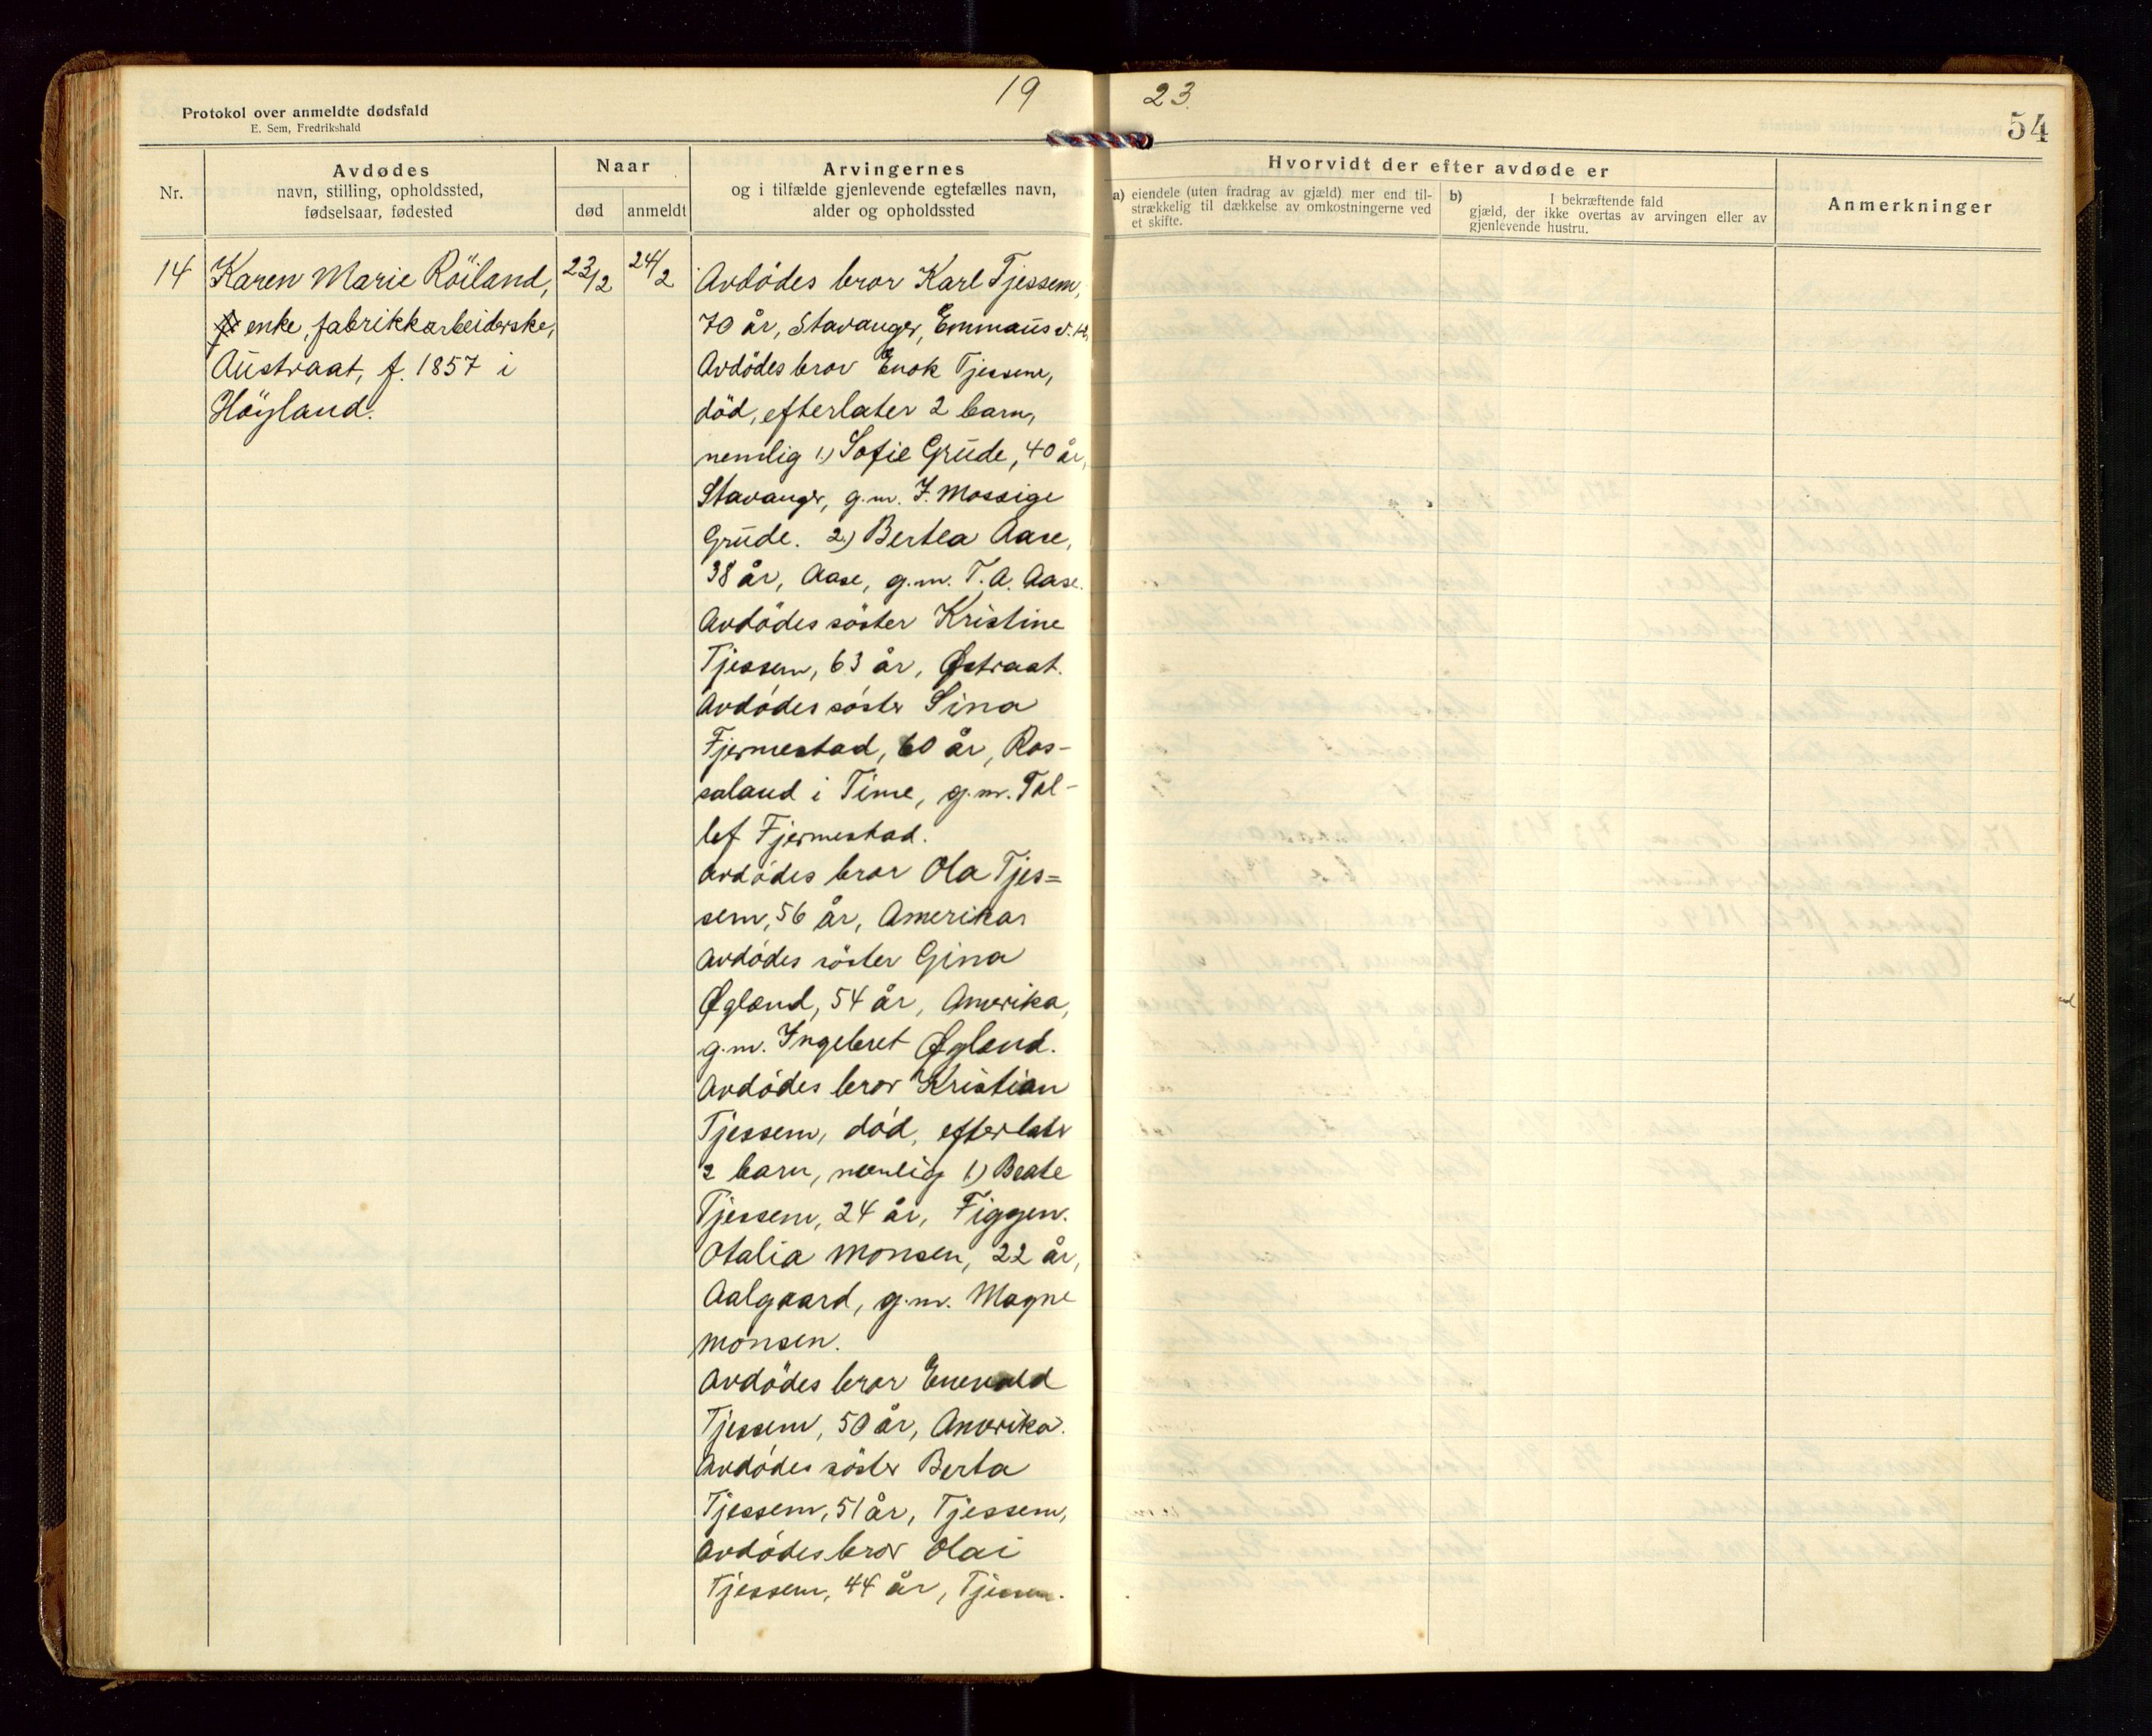 19
23.
Protokol over anmeldte dødsfald
E. Sem, Fredrikshald
54
Nr.
Avdødes
navn, stilling, opholdssted,
fødselsaar, fødested
Naar
død
anmeldt
Arvingernes
og i tilfælde gjenlevende egtefælles navn,
alder og opholdssted
Hvorvidt der efter avdøde er
a) eiendele (uten fradrag av gjæld) mer end til-
strækkelig til dækkelse av omkostningerne ved
et skifte.
b) I bekræftende fald
gjæld, der ikke overtas av arvingen eller av
gjenlevende hustru.
Anmerkninger
14
Karen Marie Röiland,
enke, fabrikkarbeiderske,
Austraat, f. 1857 i
Höyland.
23/2
24/2
Avdödes bror Karl Tjessem,
70 år, Stavanger, Emmaus v. 12,
Avdödes bror Enok Tjessem,
död, efterlater 2 barn,
nemlig 1.) Sofie Grude, 40 år,
Stavanger, g.m. J. Mossige
Grude. 2.) Bertea Aase,
38 år, Aase, g.m. T. A. Aase.
Avdödes söster Kristine
Tjessem, 63 år, Østraat.
Avdödes söster Sina
Fjermestad, 60 år, Ros-
saland i Time, g.m. Tol-
lef Fjermestad.
Avdödes bror Ola Tjes=
sem, 56 år, Amerika
Avdödes söster Gina
Øgland, 54 år, Amerika,
g.m. Ingebret Øgland.
Avdödes bror Kristian
Tjessem, död, efterlater
2 barn, nemlig 1.) Beate
Tjessem, 24 år, Figgen.
Otalia Monsen, 22 år,
Aalgaard, g.m. Magne
Monsen.
Avdödes bror Enevald
Tjessem, 50 år, Amerika.
Avdödes söster Berta
Tjessem, 51 år, Tjessem,
Avdödes bror Olai
Tjessem, 44 år, Tjessem.